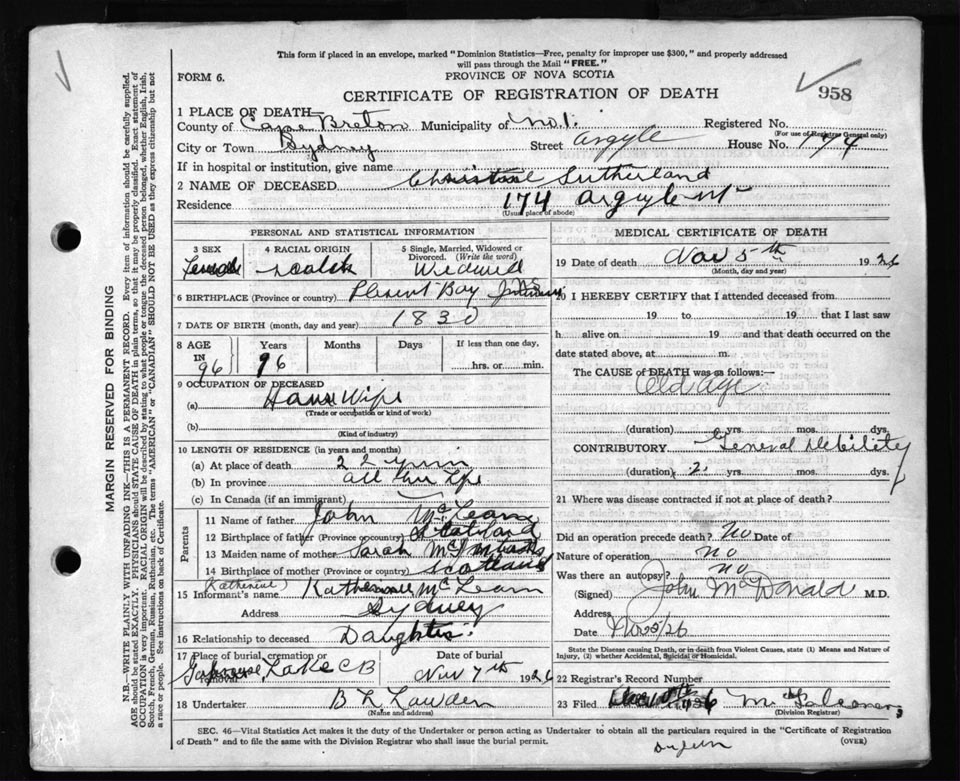 This form if placed in an envelope, marked "Dominion Statistics—Free, penalty for improper use $300," and properly addressed
will pass through the Mail "FREE."
FORM 6.
PROVINCE OF NOVA SCOTIA
CERTIFICATE OF REGISTRATION OF DEATH
958
1 PLACE OF DEATH—
County of Cape Breton Municipality of No 1. Registered No.
(For use of Registrar General only)
City or Town Sydney Street Argyle House No. 174
If in hospital or institution, give name
2 NAME OF DECEASED Sutherland
Residence 174 Argyle
(Usual place of abode)
PERSONAL AND STATISTICAL INFORMATION
3 SEX 4 RACIAL ORIGIN 5 Single, Married, Widowed or Divorced. (Write the word)
Female Scotch
6 BIRTHPLACE (Province or country) Bay
7 DATE OF BIRTH (month, day and year) 1830
8 AGE Years Months Days If less than one day,
IN 96 96 hrs. or min.
9 OCCUPATION OF DECEASED
(a) House Wife
(Trade or occupation or kind of work)
(b)
(Kind of industry)
10 LENGTH OF RESIDENCE (in years and months)
(a) At place of death 22 years
(b) In province all
(c) In Canada (if an immigrant)
Parents
11 Name of father John McLean
12 Birthplace of father (Province or country) Scotland
13 Maiden name of mother Sarah
14 Birthplace of mother (Province or country) Scotland
(Katherine)
15 Informant's name McLean
Address Sydney
16 Relationship to deceased Daughter
17 Place of burial, cremation or removal Date of burial
Lake C B Nov 7th 1926
18 Undertaker B L
(Name and address)
MEDICAL CERTIFICATE OF DEATH
19 Date of death Nov 5th 1926
(Month, day and year)
20 I HEREBY CERTIFY that I attended deceased from
19 to 19 that I last saw
h alive on 19 and that death occurred on the
date stated above, at m.
The CAUSE of DEATH was as follows:—
Old age
(duration) yrs. mos. dys.
CONTRIBUTORY General Debility
(duration) 2 yrs. mos. dys.
21 Where was disease contracted if not at place of death?
Did an operation precede death? No Date of
Nature of operation no
Was there an autopsy? no
(Signed) John McDonald M.D.
Address
Date Nov 5/26
State the Disease causing Death, or in death from Violent Causes, state (1) Means and Nature of
Injury, (2) whether Accidental, Suicidal or Homicidal.
22 Registrar's Record Number
23 Filed
(Division Registrar)
SEC. 46—Vital Statistics Act makes it the duty of the Undertaker or person acting as Undertaker to obtain all the particulars required in the "Certificate of Registration
of Death" and to file the same with the Division Registrar who shall issue the burial permit.
(OVER)
MARGIN RESERVED FOR BINDING
N.B.—WRITE PLAINLY WITH UNFADING INK—THIS IS A PERMANENT RECORD. Every item of information should be carefully supplied.
AGE should be stated EXACTLY. PHYSICIANS should STATE CAUSE OF DEATH in plain terms, so that it may be properly classified. Exact statement of
OCCUPATION is very important. RACIAL ORIGIN will be described by stating to what people or tongue the deceased person belonged, whether English, Irish,
Scotch, French, German, Russian, Ruthenian, etc. The terms "AMERICAN" or "CANADIAN" SHOULD NOT BE USED as they express citizenship but not
a race or people. See instructions on back of Certificate.